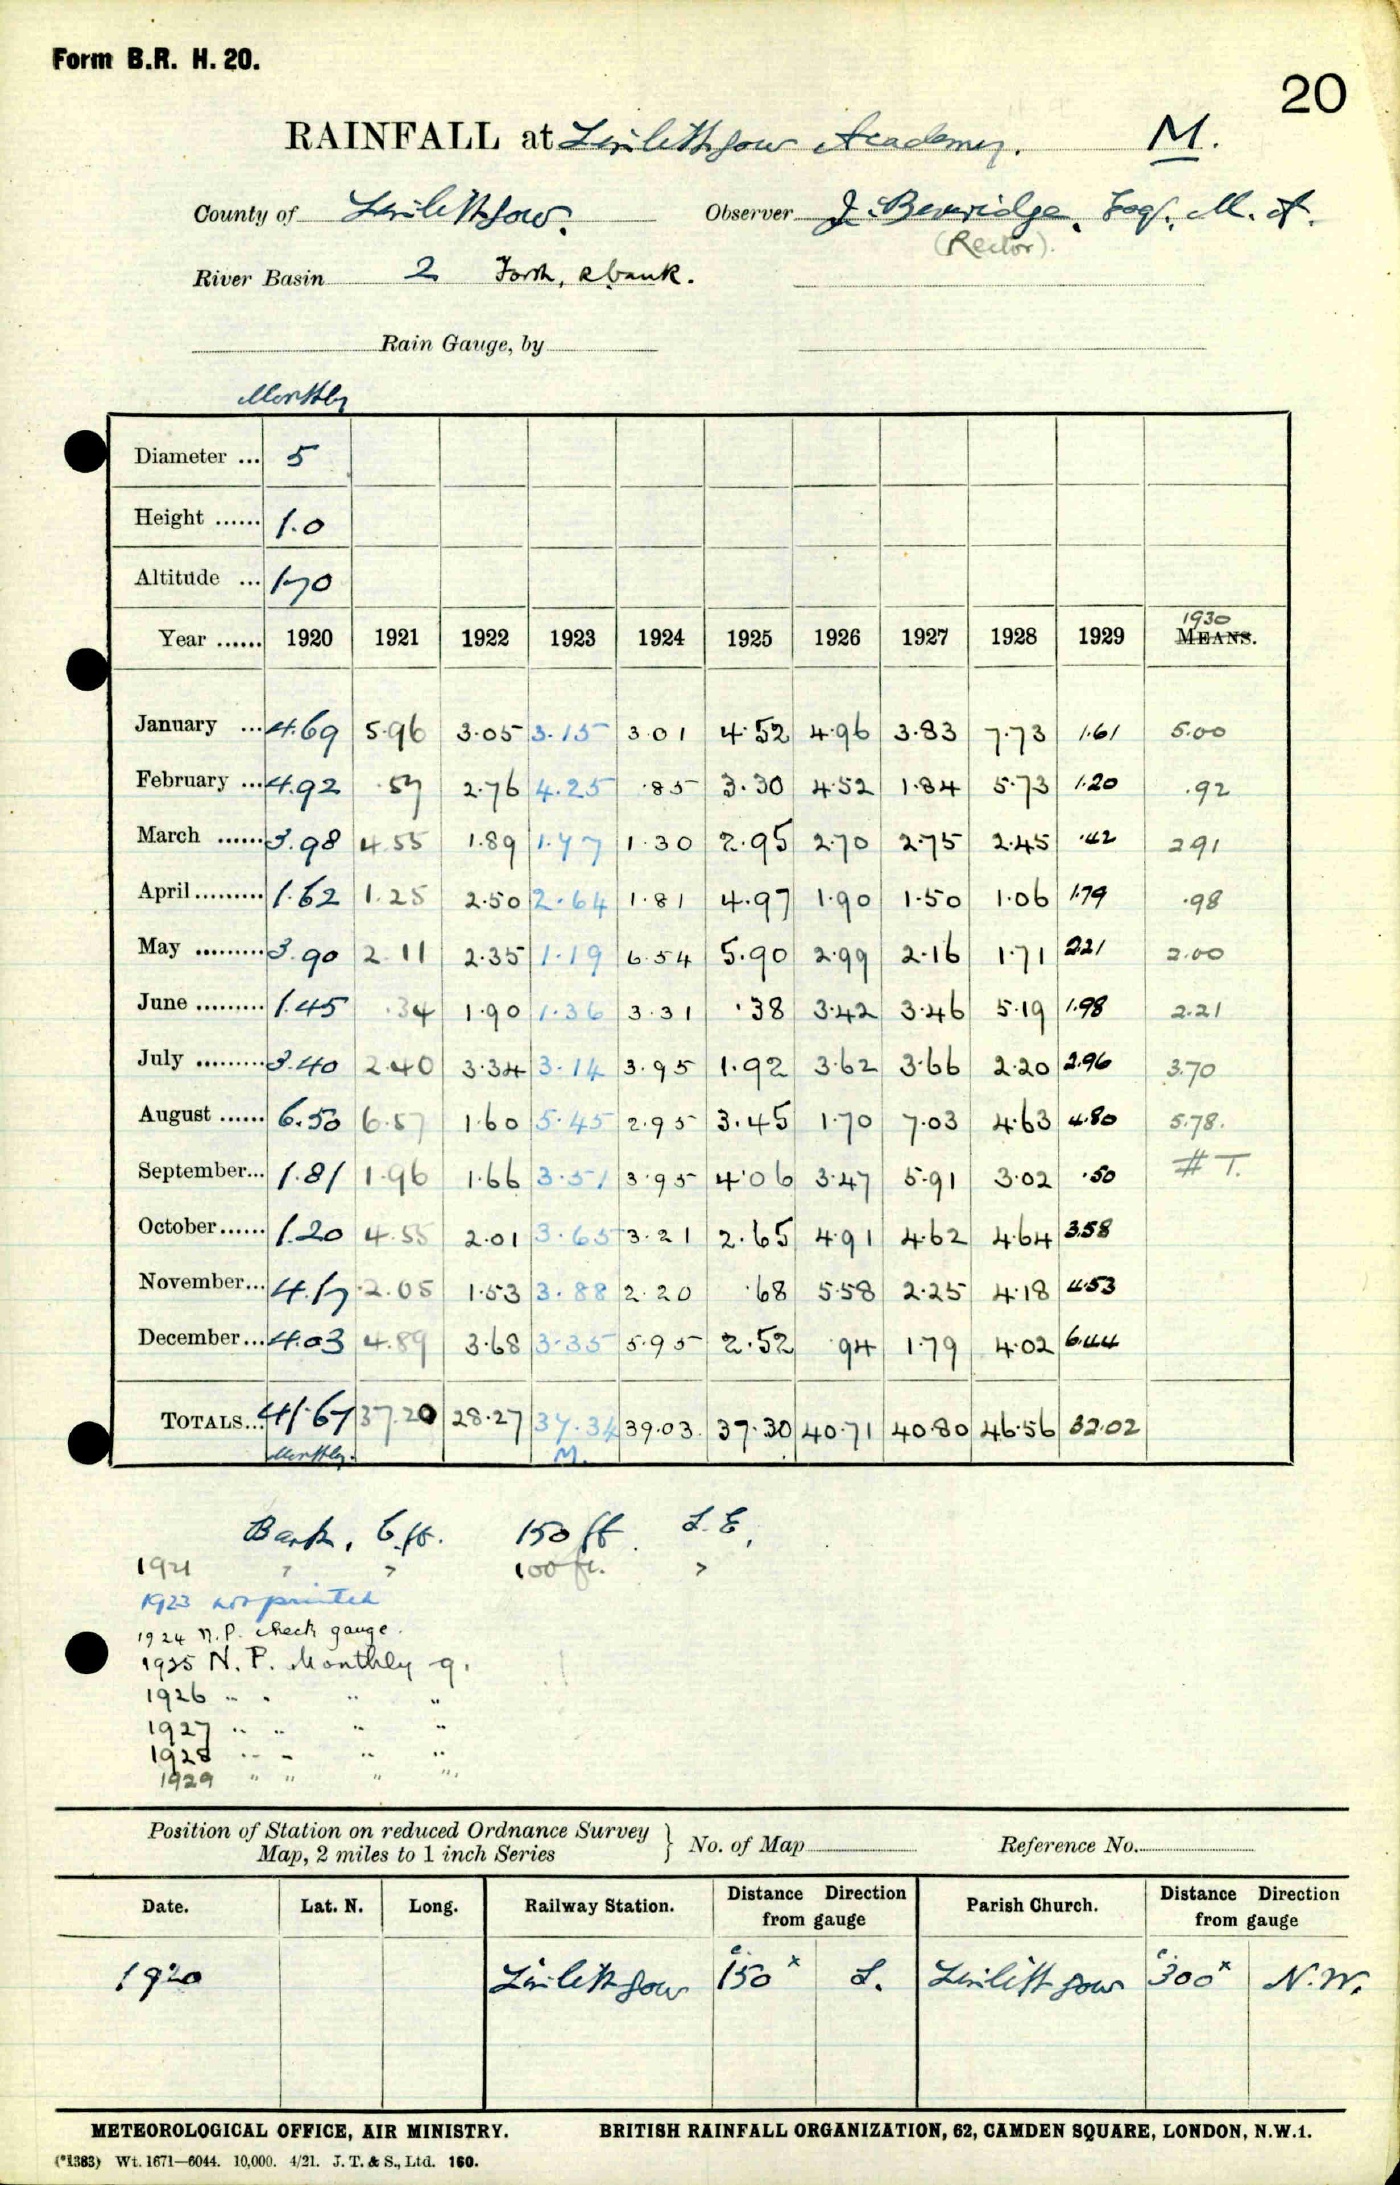 Form B.R. H. 20.
20
RAINFALL at Linlithgow Academy. M.
County of Linlithgow. Observer J. Beveridge, Esq., M.A.
(Rector).
River Basin 2 Forth, a bank.
Rain Gauge, by
Monthly
Diameter ... 5
Height ...... 1.0
Altitude ... 170
1930
Year ...... 1920 1921 1922 1923 1924 1925 1926 1927 1928 1929 MEANS.
January ... 4.69 5.96 3.05 3.15 3.01 4.52 4.96 3.83 7.73 1.61 5.00
February ... 4.92 .57 2.76 4.25 .85 3.30 4.52 1.84 5.73 1.20 .92
March ...... 3.98 4.55 1.89 1.77 1.30 2.95 2.70 2.75 2.45 .42 2.91
April ......... 1.62 1.25 2.50 2.64 1.81 4.97 1.90 1.50 1.06 1.79 .98
May ......... 3.90 2.11 2.35 1.19 6.54 5.90 2.99 2.16 1.71 2.21 2.00
June ......... 1.45 .34 1.90 1.36 3.31 .38 3.42 3.46 5.19 1.98 2.21
July ......... 3.40 2.40 3.34 3.14 3.95 1.92 3.62 3.66 2.20 2.96 3.70
August ...... 6.50 6.57 1.60 5.45 2.95 3.45 1.70 7.03 4.63 4.80 5.78.
September... 1.81 1.96 1.66 3.51 3.95 4.06 3.47 5.91 3.02 .50 # T.
October...... 1.20 4.55 2.01 3.65 3.21 2.65 4.91 4.62 4.64 3.58
November... 4.17 2.05 1.53 3.88 2.20 .68 5.58 2.25 4.18 4.53
December... 4.03 4.89 3.68 3.35 5.95 2.52 .94 1.79 4.02 6.44
TOTALS... 41.67 37.20 28.27 37.34 39.03 37.30 40.71 40.80 46.56 32.02
Monthly. M.
Bank, 6 ft. 150 ft. S.E.
1921 " " 100 ft. "
1923 not printed
1924 N.P. check gauge.
1925 N.P. Monthly g.
1926 " " " "
1927 " " " "
1928 " " " "
1929 " " " "
Position of Station on reduced Ordnance Survey Map, 2 miles to 1 inch Series } No. of Map Reference No.
Date. Lat. N. Long. Railway Station. Distance Direction from gauge Parish Church. Distance Direction from gauge
1920 Linlithgow c. 150 x S. Linlithgow c. 300 x N.W.
METEOROLOGICAL OFFICE, AIR MINISTRY. BRITISH RAINFALL ORGANIZATION, 62, CAMDEN SQUARE, LONDON, N.W.1.
(*1383) Wt. 1671—6044. 10,000. 4/21. J. T. & S., Ltd. 160.